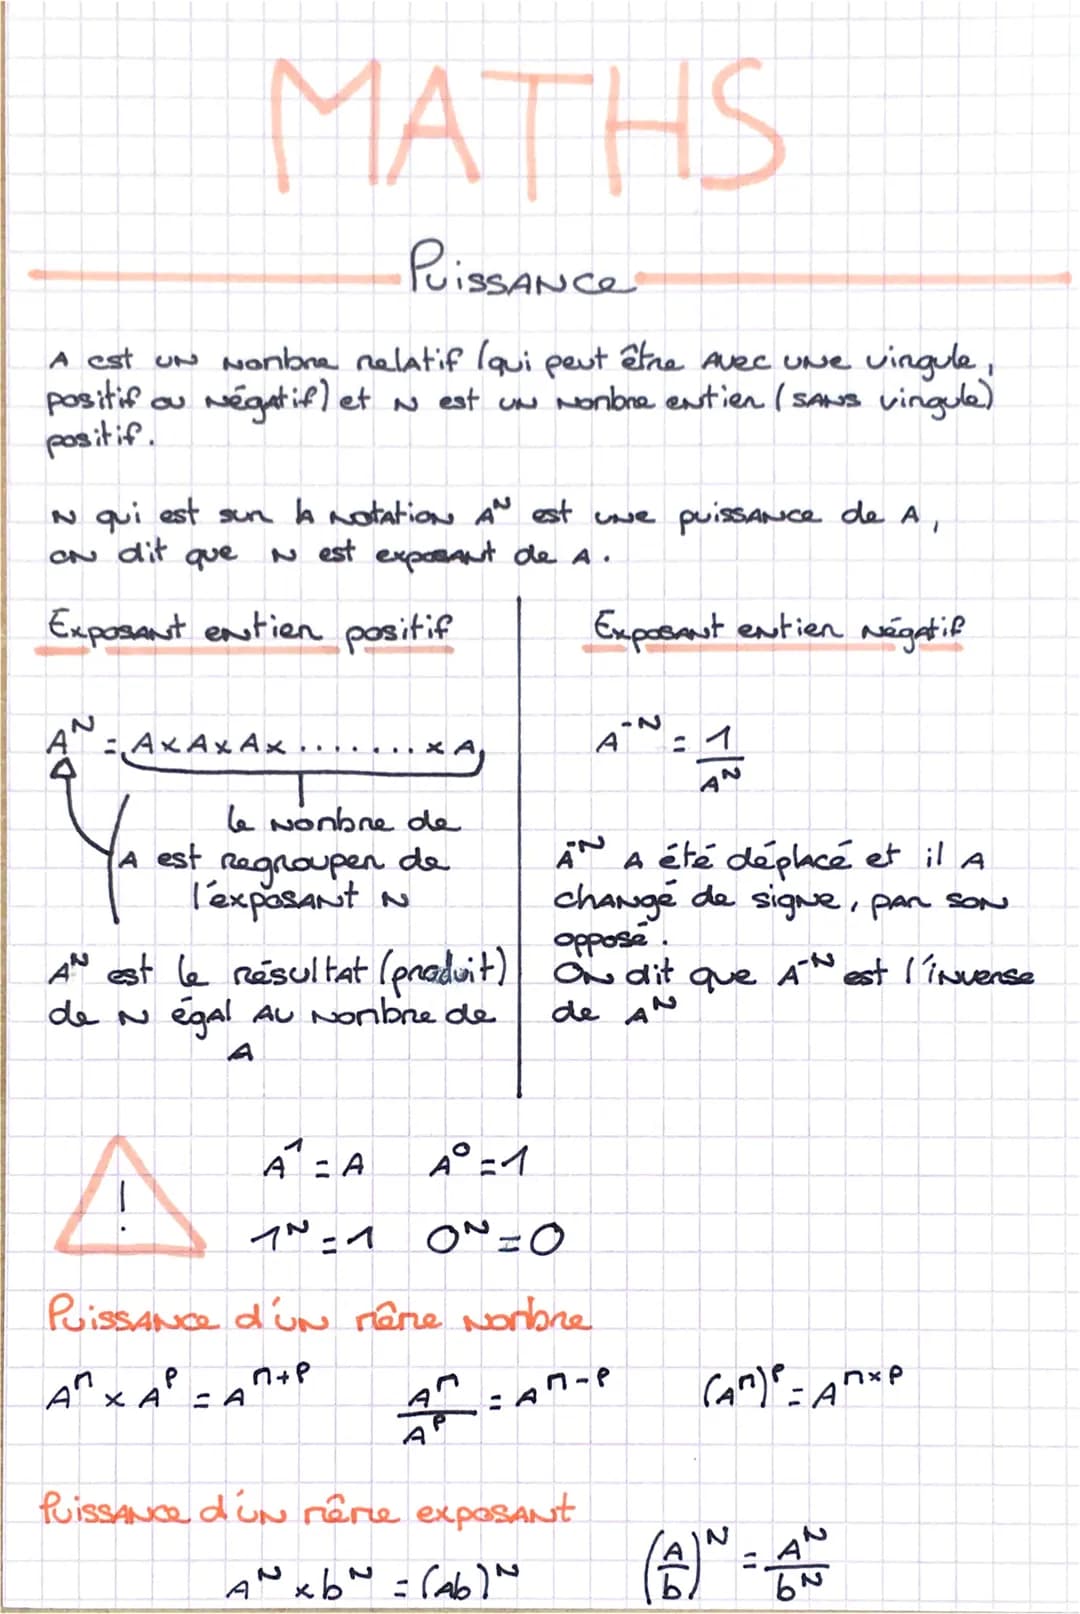 MATHS
Puissance
A est un nombre relatif (qui peut être avec une virgule,
positif ou négatif) et N est un nombre entier (sans virgule)
positif.
N qui est sur la notation Aᴺ est une puissance de A,
on dit que N est exposant de A.
Exposant entier positif
Aᴺ = A x A x A x ........ x A
le nombre de
A est regrouper de
l'exposant N
Aᴺ est le résultat (produit)
de N égal au nombre de
A
Exposant entier négatif
A⁻ᴺ = 1/Aᴺ
A⁻ᴺ A été déplacé et il a
changé de signe, par son
opposé.
On dit que A⁻ᴺ est l'inverse
de Aᴺ
!
A¹ = A A⁰ = 1
1ᴺ = 1 0ᴺ = 0
Puissance d'un même nombre
Aᵐ x Aᵖ = Aᵐ⁺ᵖ Aᵐ/Aᵖ = Aᵐ⁻ᵖ (Aᵐ)ᵖ = Aᵐˣᵖ
Puissance d'un même exposant
Aᴺ x bᴺ = (Ab)ᴺ (A/b)ᴺ = Aᴺ/bᴺ